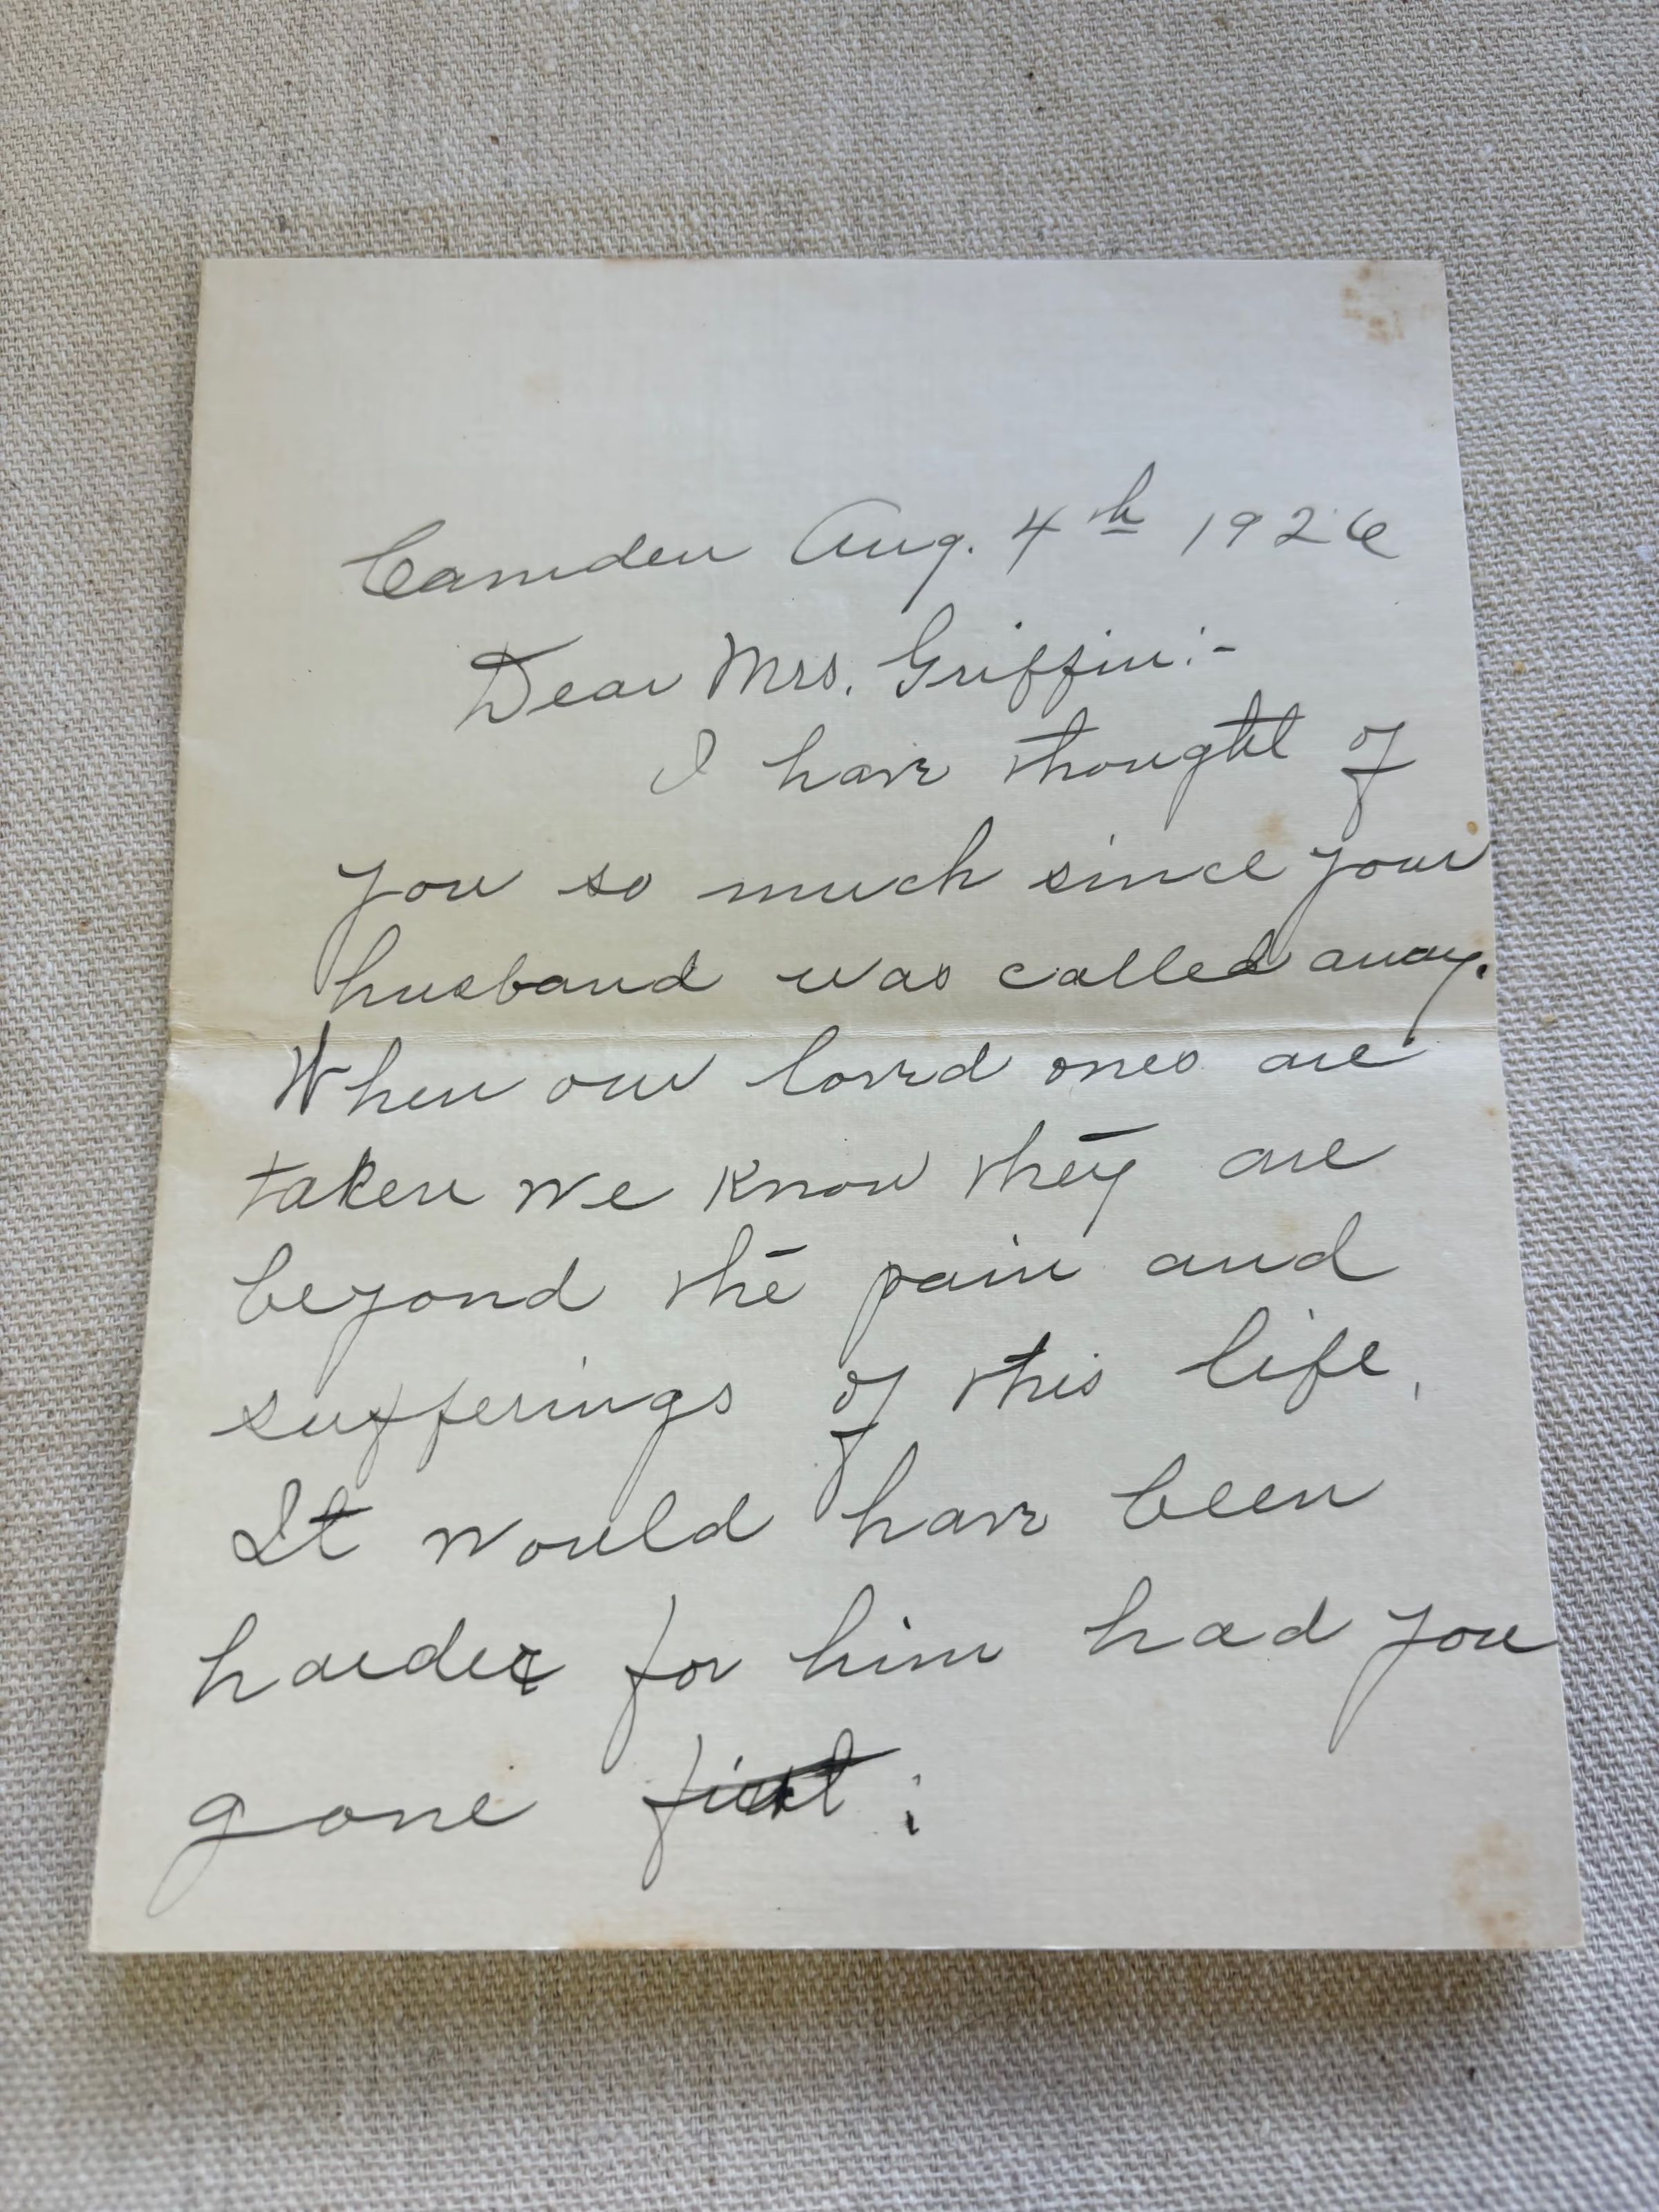 Camden Aug. 4th 1926
Dear Mrs. Griffin:-
I have thought of
you so much since your
husband was called away.
When our loved ones are
taken we know they are
beyond the pain and
sufferings of this life.
It would have been
harder for him had you
gone first.